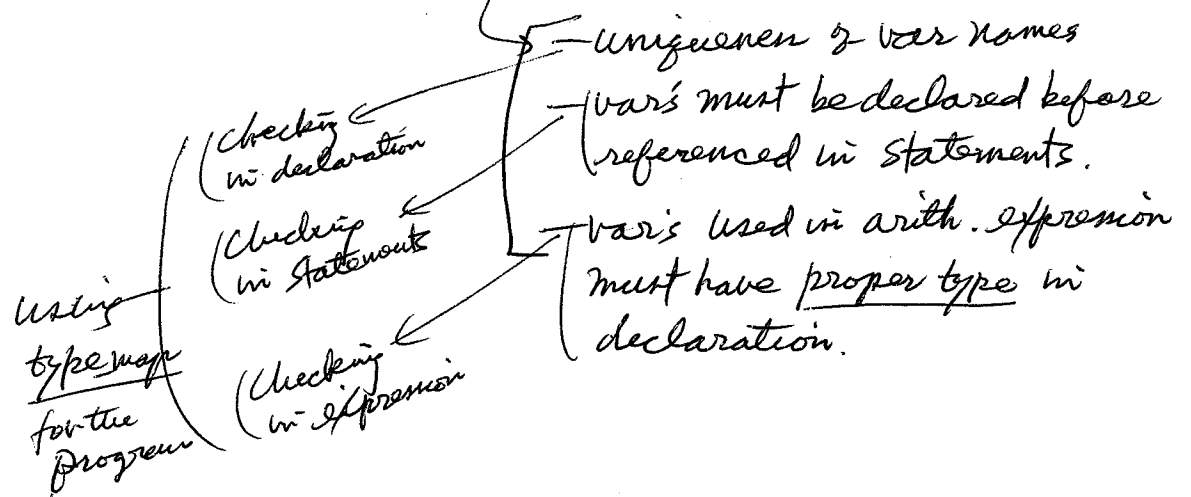 — uniqueness of var names
— var's must be declared before
referenced in statements.
— var's used in arith. expression
must have proper type in
declaration.
checking
in declaration
checking
in statements
checking
in expression
using
type map
for the
program